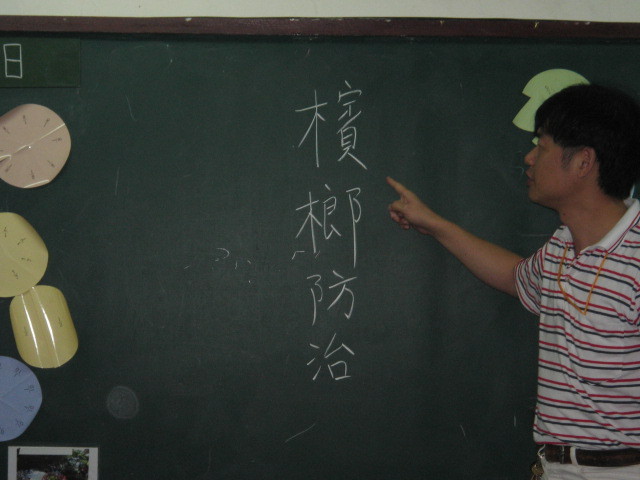 檳榔防治
日